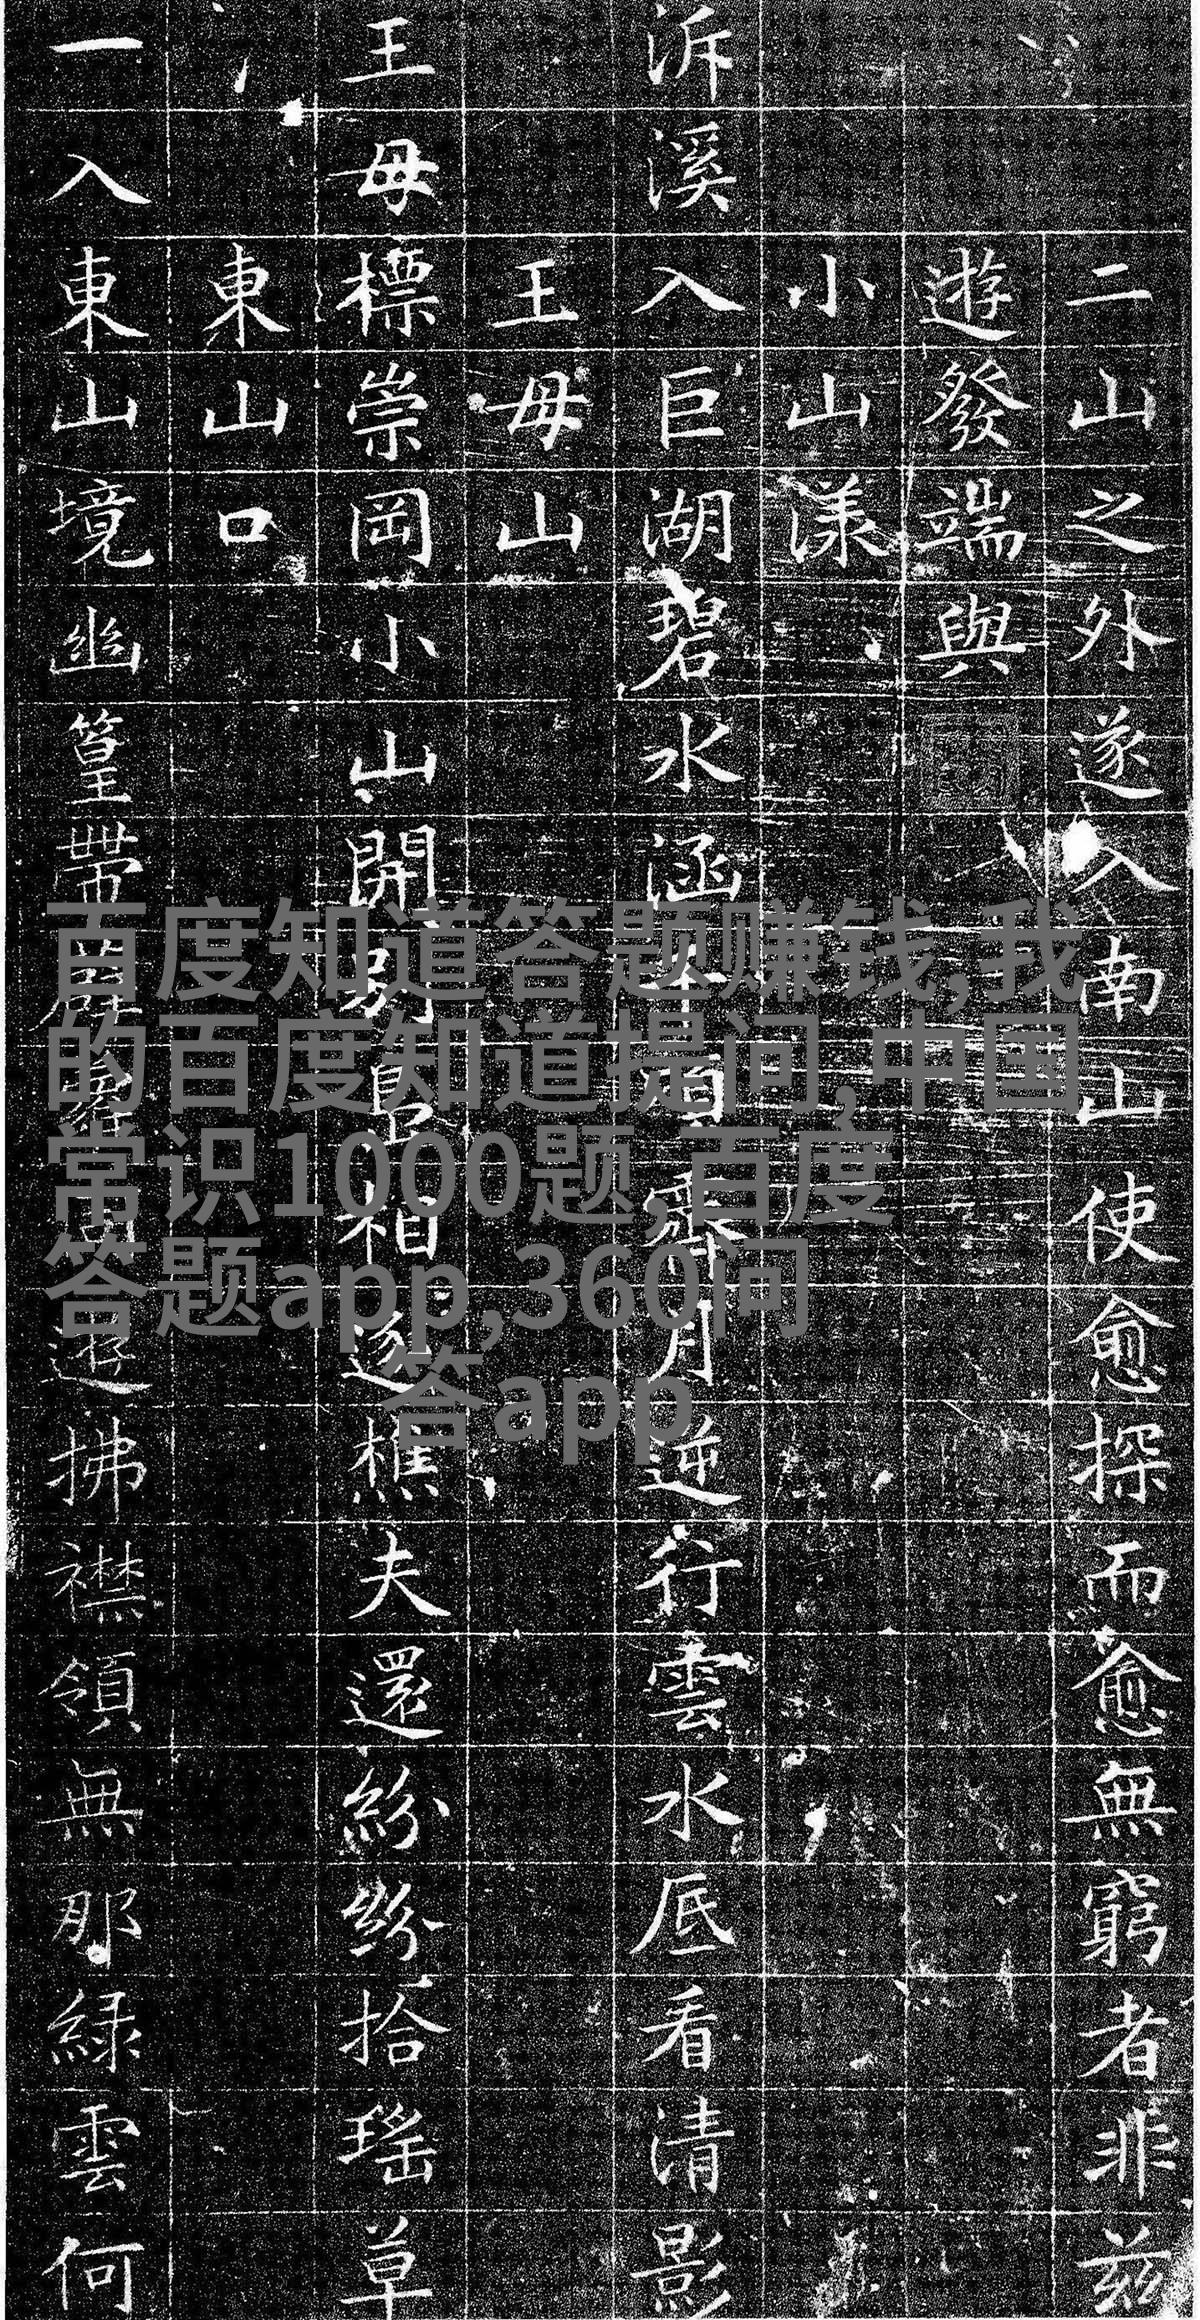 二山之外遂入南山使愈探而愈無窮者非茲
遊發端與
小山漾
泝溪入巨湖碧水涵 霽月逆行雲水底看清影
王母山
王母標崇岡小山開 相逐樵夫還紛紛拾瑤草
東山口
一入東山境幽篁帶 拂襟領無那綠雲何
百度知道答题赚钱,我
的百度知道提问,中国
常识1000题,百度
答题app,360问
答app